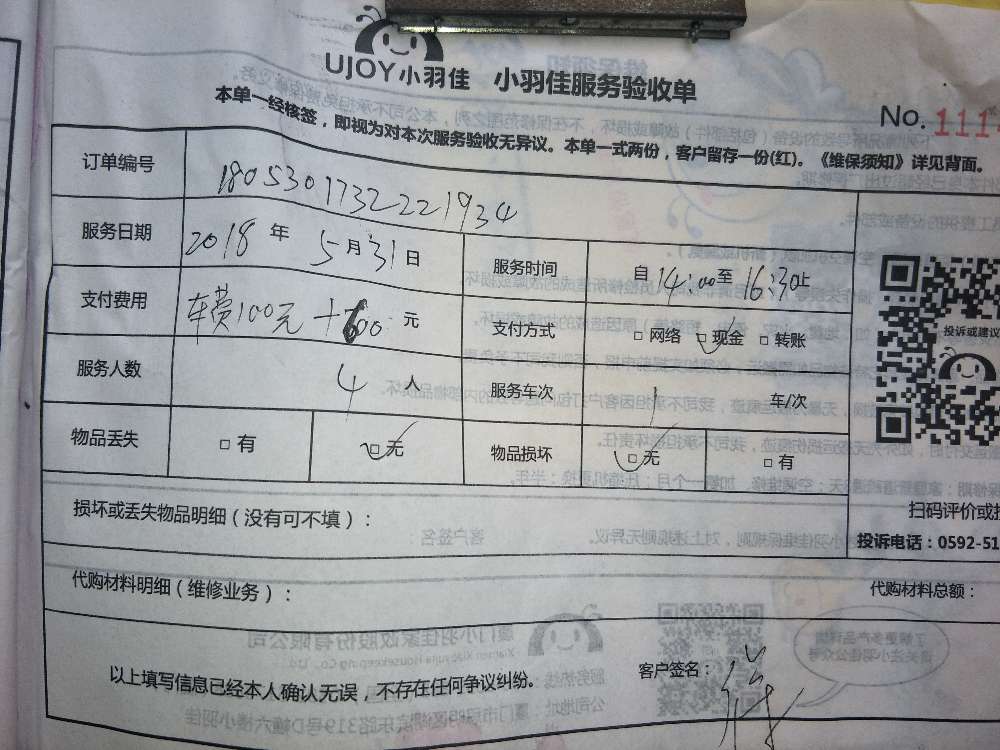 UJOY小羽佳 小羽佳服务验收单
No. 111
本单一经核签，即视为对本次服务验收无异议。本单一式两份，客户留存一份(红)。《维保须知》详见背面。
订单编号 1805301732221934
服务日期 2018年5月31日 服务时间 自14:00至16:30止
支付费用 车费100元+600元 支付方式 □网络 □现金 □转账
投诉或建议
服务人数 4人 服务车次 1 车/次
物品丢失 □有 □无 物品损坏 □无 □有
损坏或丢失物品明细（没有可不填）：
扫码评价或
投诉电话：0592-51
代购材料明细（维修业务）： 代购材料总额：
以上填写信息已经本人确认无误，不存在任何争议纠纷。 客户签名：